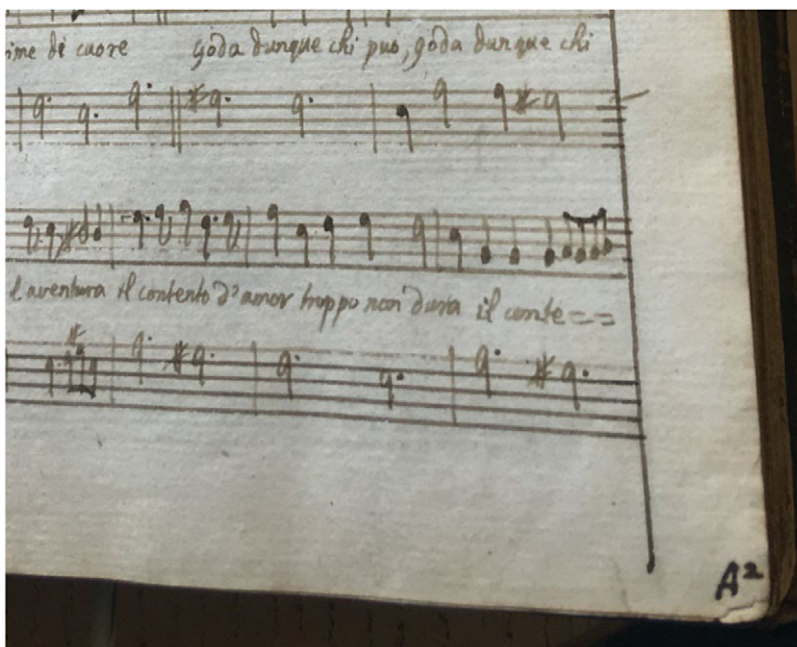 ime di cuore goda dunque chi puo, goda dunque chi
l'aventura il contento d'amor troppo non dura il conte= =
A²